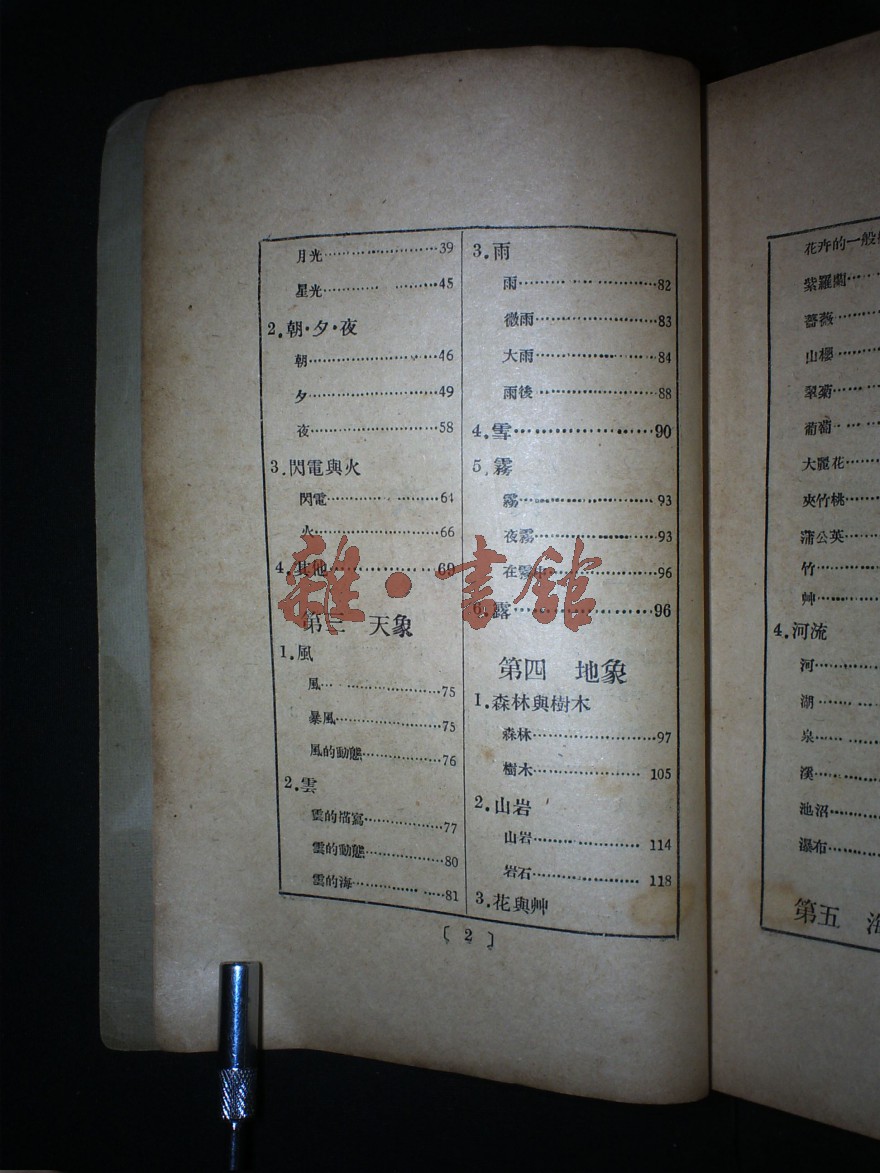 月光……………………39
星光…………… ………45
2.朝·夕·夜
朝………………………46
夕………………………49
夜………………………58
3.閃電與火
閃電…………… ………64
火………………………66
4.其他…………………69
第三 天象
1.風
風… …………………75
暴風……………………75
風的動態………………76
2.雲
雲的描寫………………77
雲的動態………………80
雲的海…………… ……81
3.雨
雨…………………………82
微雨………………………83
大雨………………………84
雨後………………………88
4.雪………………………90
5.霧
霧…………………………93
夜霧………………………93
在霧中……………………96
6.露………………………96
第四 地象
1.森林與樹木
森林………………………97
樹木…………………… 105
2.山岩
山岩…………………… 114
岩石…………………… 118
3.花與艸
〔 2 〕
花卉的一般
紫羅蘭……
薔薇………
山櫻………
翠菊………
葡萄………
大麗花……
夾竹桃……
蒲公英……
竹…………
艸…………
4.河流
河…………
湖…………
泉…………
溪…………
池沼………
瀑布………
第五 海
雜·書館